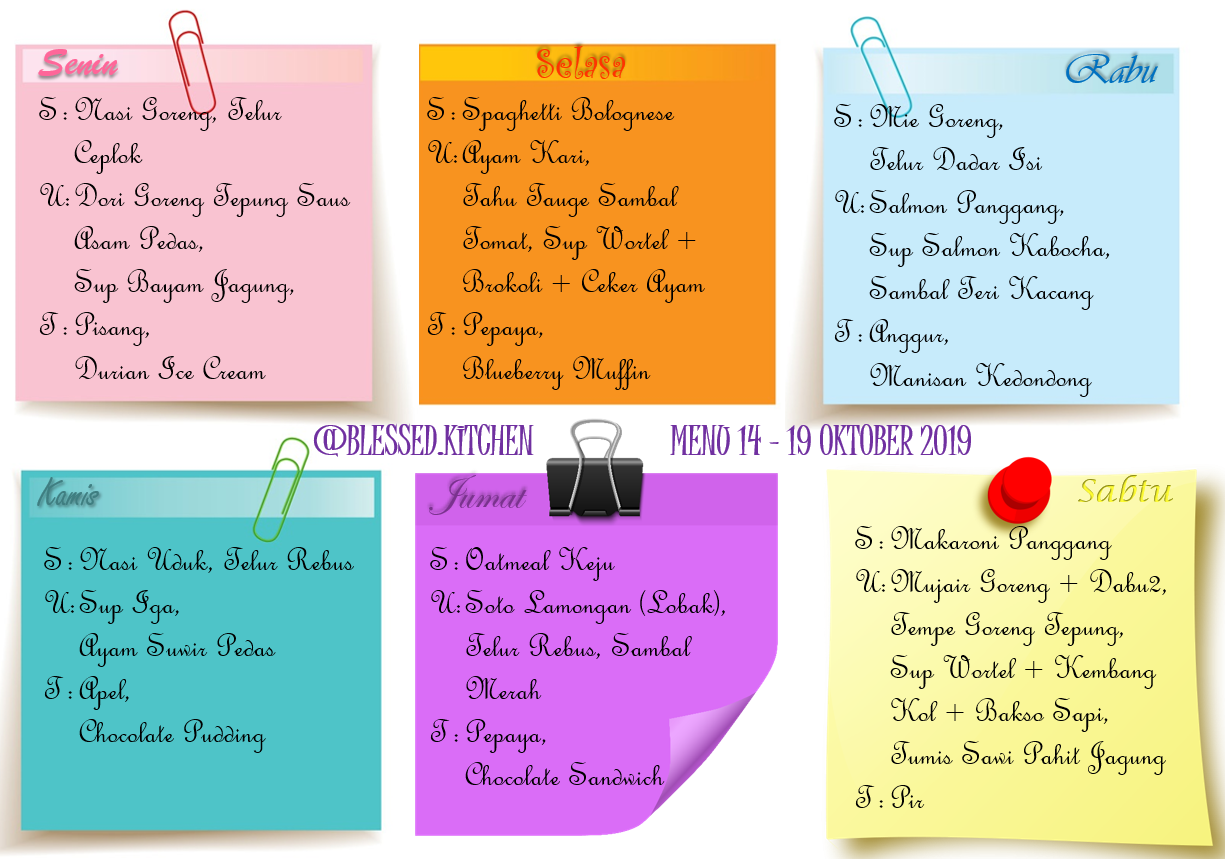 Senin
S : Nasi Goreng, Telur
Ceplok
U: Dori Goreng Tepung Saus
Asam Pedas,
Sup Bayam Jagung,
T : Pisang,
Durian Ice Cream
Selasa
S : Spaghetti Bolognese
U: Ayam Kari,
Tahu Tauge Sambal
Tomat, Sup Wortel +
Brokoli + Ceker Ayam
T : Pepaya,
Blueberry Muffin
Rabu
S : Mie Goreng,
Telur Dadar Isi
U: Salmon Panggang,
Sup Salmon Kabocha,
Sambal Teri Kacang
T : Anggur,
Manisan Kedondong
@BLESSED.KITCHEN MENU 14 - 19 OKTOBER 2019
Kamis
S : Nasi Uduk, Telur Rebus
U: Sup Iga,
Ayam Suwir Pedas
T : Apel,
Chocolate Pudding
Jumat
S : Oatmeal Keju
U: Soto Lamongan (Lobak),
Telur Rebus, Sambal
Merah
T : Pepaya,
Chocolate Sandwich
Sabtu
S : Makaroni Panggang
U: Mujair Goreng + Dabu2,
Tempe Goreng Tepung,
Sup Wortel + Kembang
Kol + Bakso Sapi,
Tumis Sawi Pahit Jagung
T : Pir